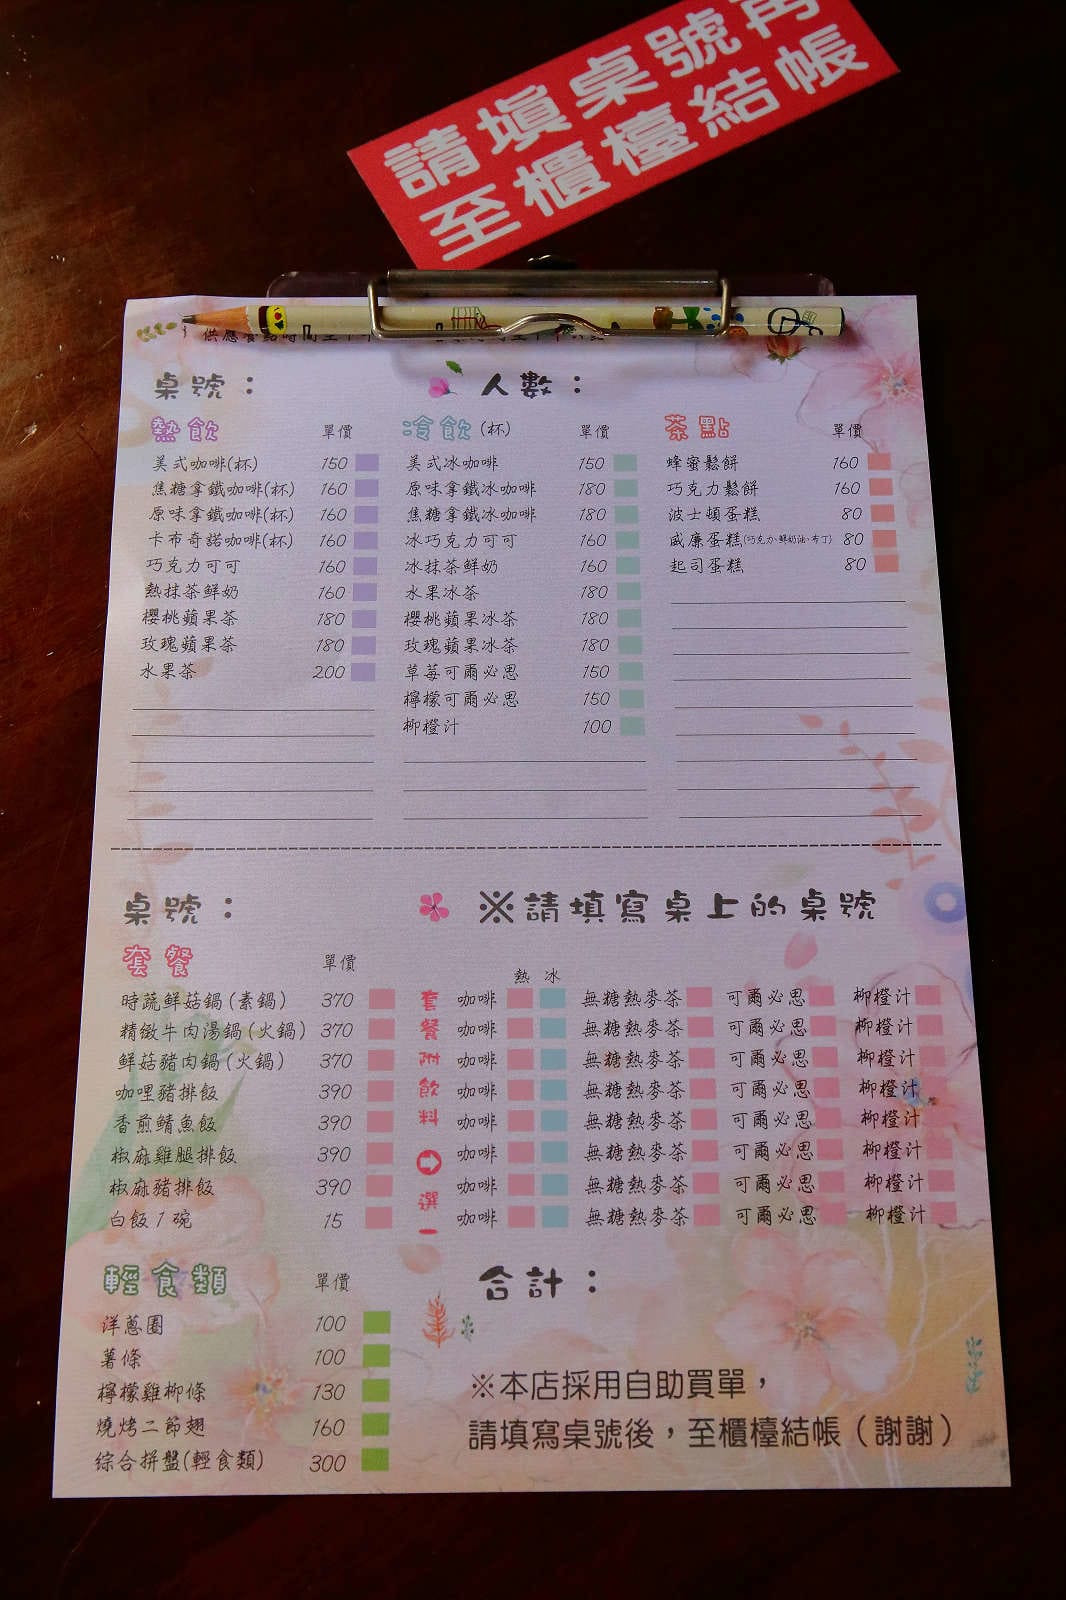 請填桌號再
至櫃檯結帳
供應餐點時間
桌號： 人數：
熱飲 單價 冷飲(杯) 單價 茶點 單價
美式咖啡(杯) 150 美式冰咖啡 150 蜂蜜鬆餅 160
焦糖拿鐵咖啡(杯) 160 原味拿鐵冰咖啡 180 巧克力鬆餅 160
原味拿鐵咖啡(杯) 160 焦糖拿鐵冰咖啡 180 波士頓蛋糕 80
卡布奇諾咖啡(杯) 160 冰巧克力可可 160 威廉蛋糕(巧克力、鮮奶油、布丁) 80
巧克力可可 160 冰抹茶鮮奶 160 起司蛋糕 80
熱抹茶鮮奶 160 水果冰茶 180
櫻桃蘋果茶 180 櫻桃蘋果冰茶 180
玫瑰蘋果茶 180 玫瑰蘋果冰茶 180
水果茶 200 草莓可爾必思 150
檸檬可爾必思 150
柳橙汁 100
桌號： ※請填寫桌上的桌號
套餐 單價 熱 冰
套餐附飲料 選一
時蔬鮮菇鍋(素鍋) 370 咖啡 無糖熱麥茶 可爾必思 柳橙汁
精緻牛肉湯鍋(火鍋) 370 咖啡 無糖熱麥茶 可爾必思 柳橙汁
鮮菇豬肉鍋(火鍋) 370 咖啡 無糖熱麥茶 可爾必思 柳橙汁
咖哩豬排飯 390 咖啡 無糖熱麥茶 可爾必思 柳橙汁
香煎鯖魚飯 390 咖啡 無糖熱麥茶 可爾必思 柳橙汁
椒麻雞腿排飯 390 咖啡 無糖熱麥茶 可爾必思 柳橙汁
椒麻豬排飯 390 咖啡 無糖熱麥茶 可爾必思 柳橙汁
白飯1碗 15 咖啡 無糖熱麥茶 可爾必思 柳橙汁
輕食類 單價 合計：
洋蔥圈 100
薯條 100
檸檬雞柳條 130
燒烤二節翅 160
綜合拼盤(輕食類) 300
※本店採用自助買單，
請填寫桌號後，至櫃檯結帳（謝謝）